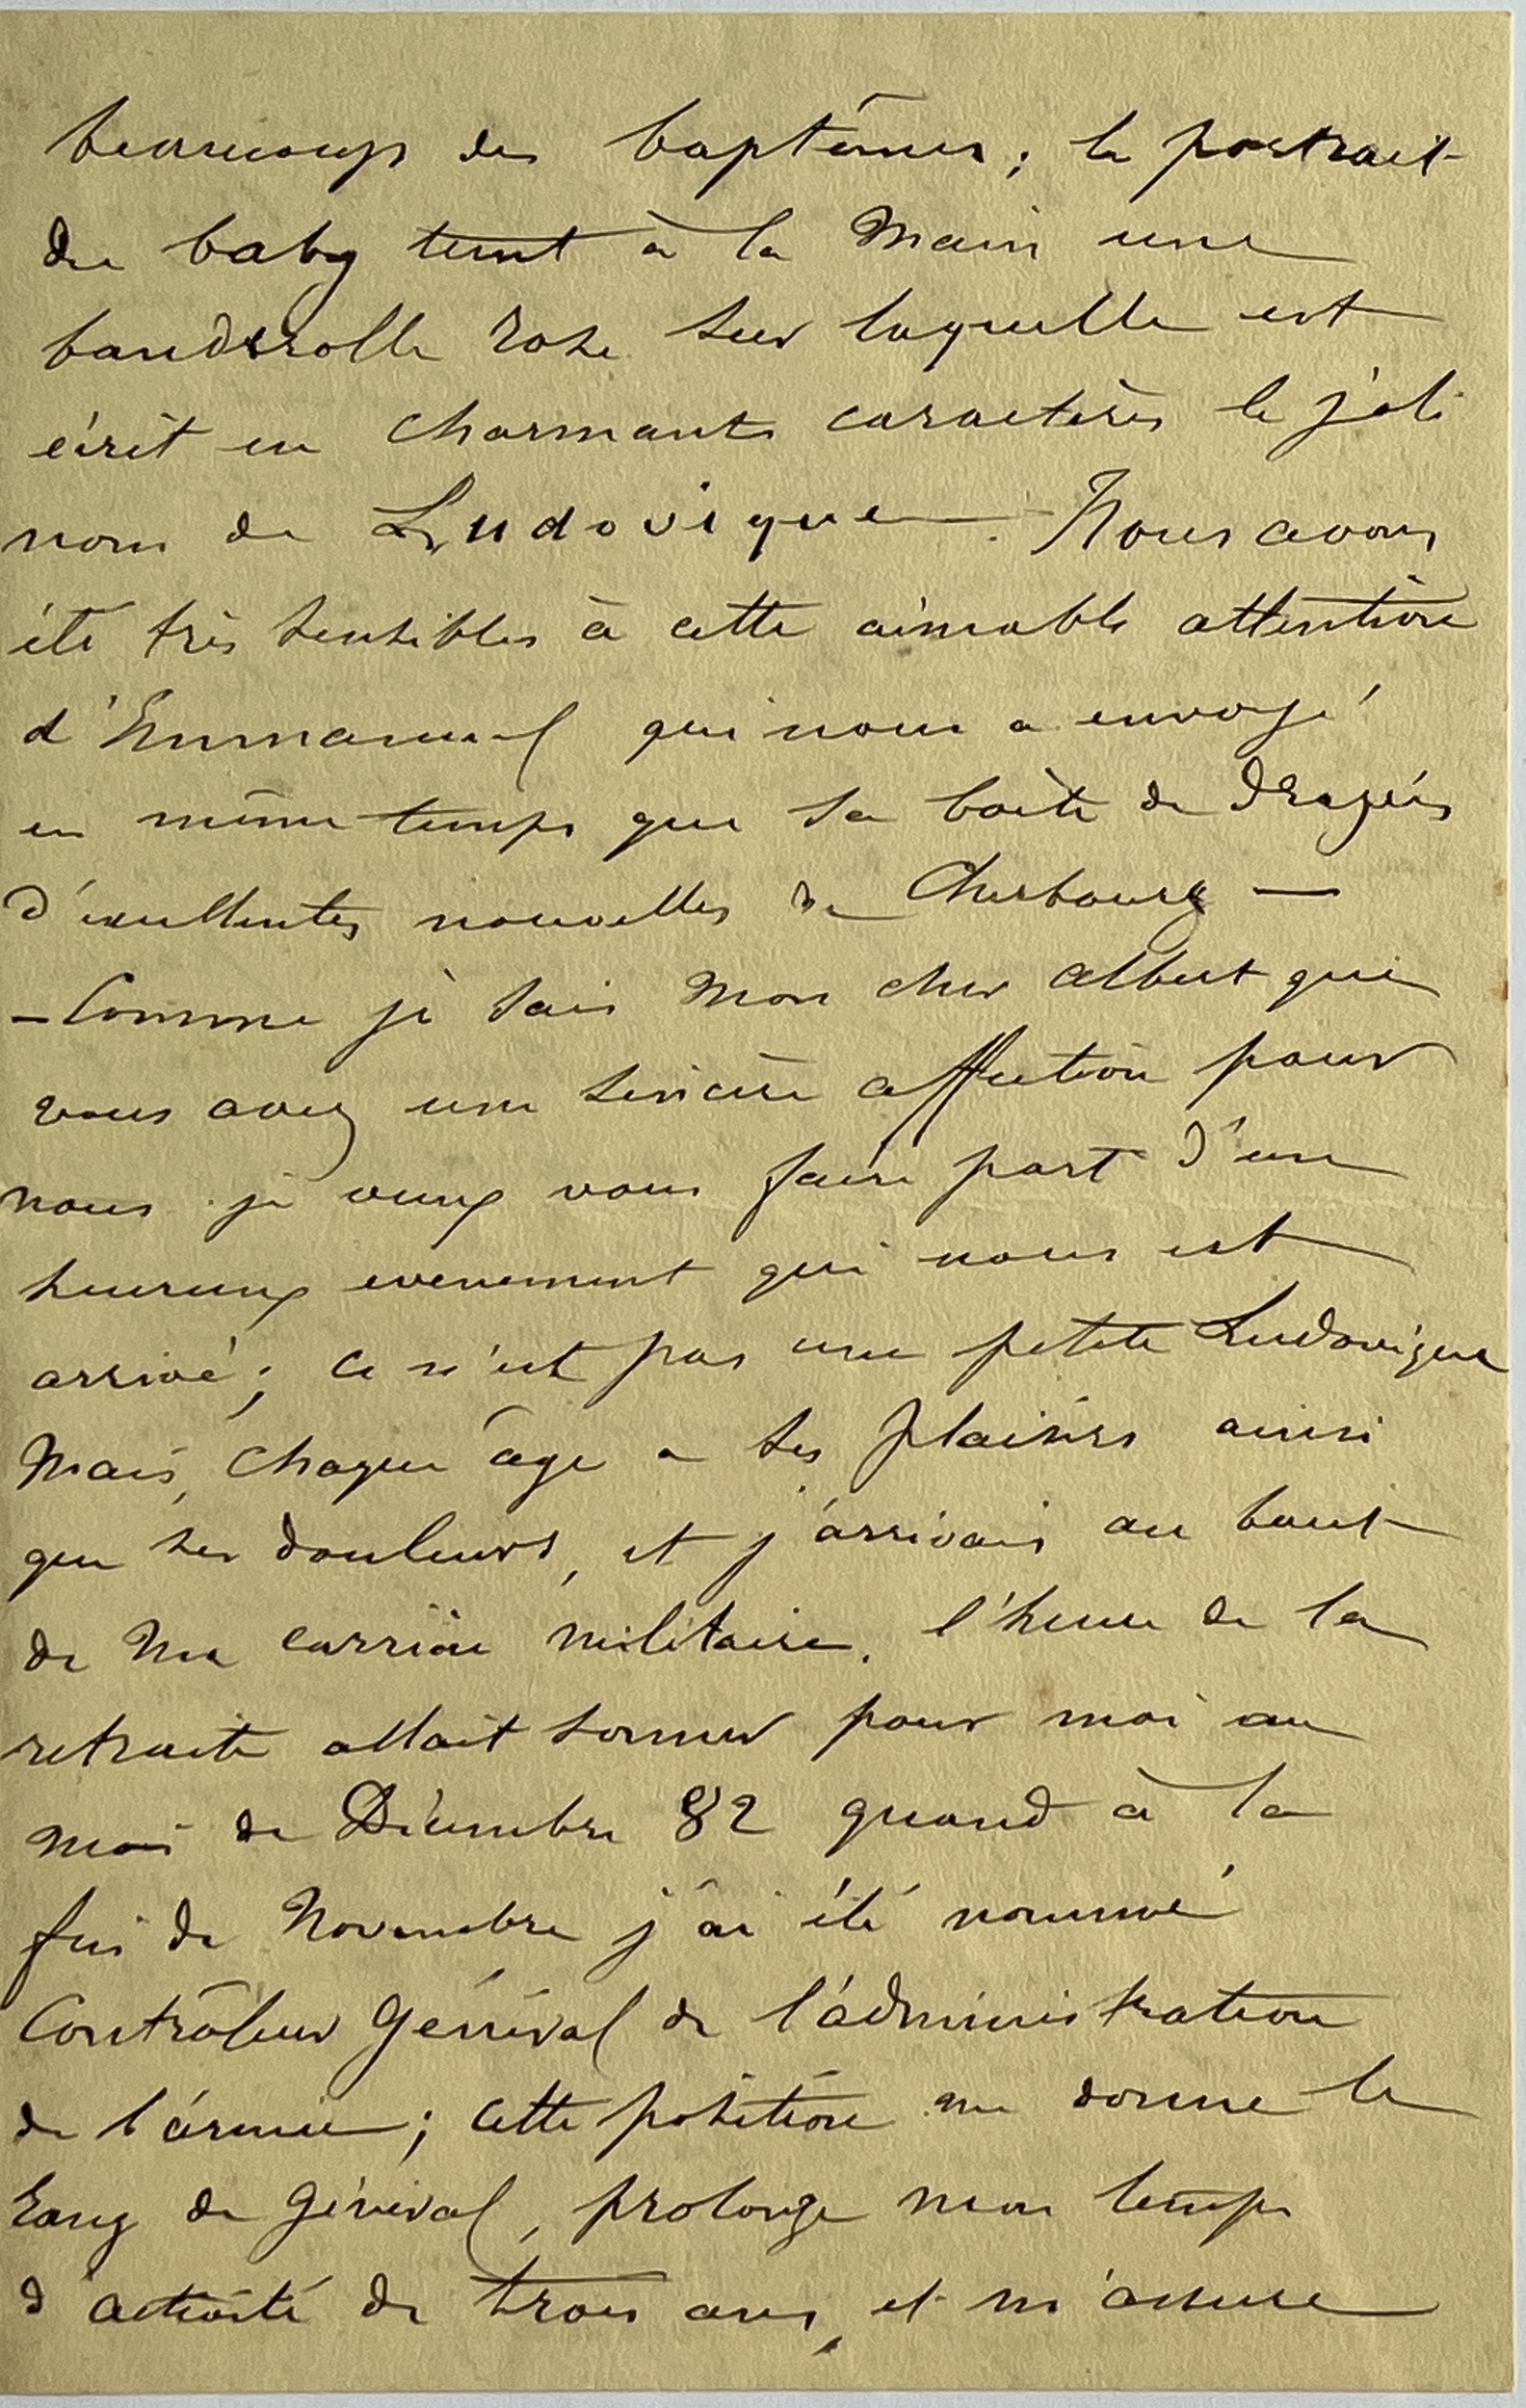 beaucoup des baptêmes ; le portrait
du baby tient à la main une
banderolle rose sur laquelle est
écrit en charmants caractères le joli
nom de Ludovique. Nous avons
été très sensibles à cette aimable attention
d'Emmanuel qui nous a envoyé
en même temps que sa boîte de dragées
d'excellentes nouvelles de Cherbourg —
— Comme je sais mon cher Albert que
vous avez une sincère affection pour
nous je veux vous faire part d'un
heureux evenement qui nous est
arrivé ; ce n'est pas une petite Ludovique
Mais, chaque âge a ses plaisirs ainsi
que ses douleurs, et j'arrivais au bout
de ma carrière militaire. l'heure de la
retraite allait sonner pour moi au
mois de Décembre 82 quand à la
fin de Novembre j'ai été nommé
Contrôleur Général de l'administration
de l'armée ; cette position me donne le
rang de Général, prolonge mon temps
d'activité de trois ans, et m'assure